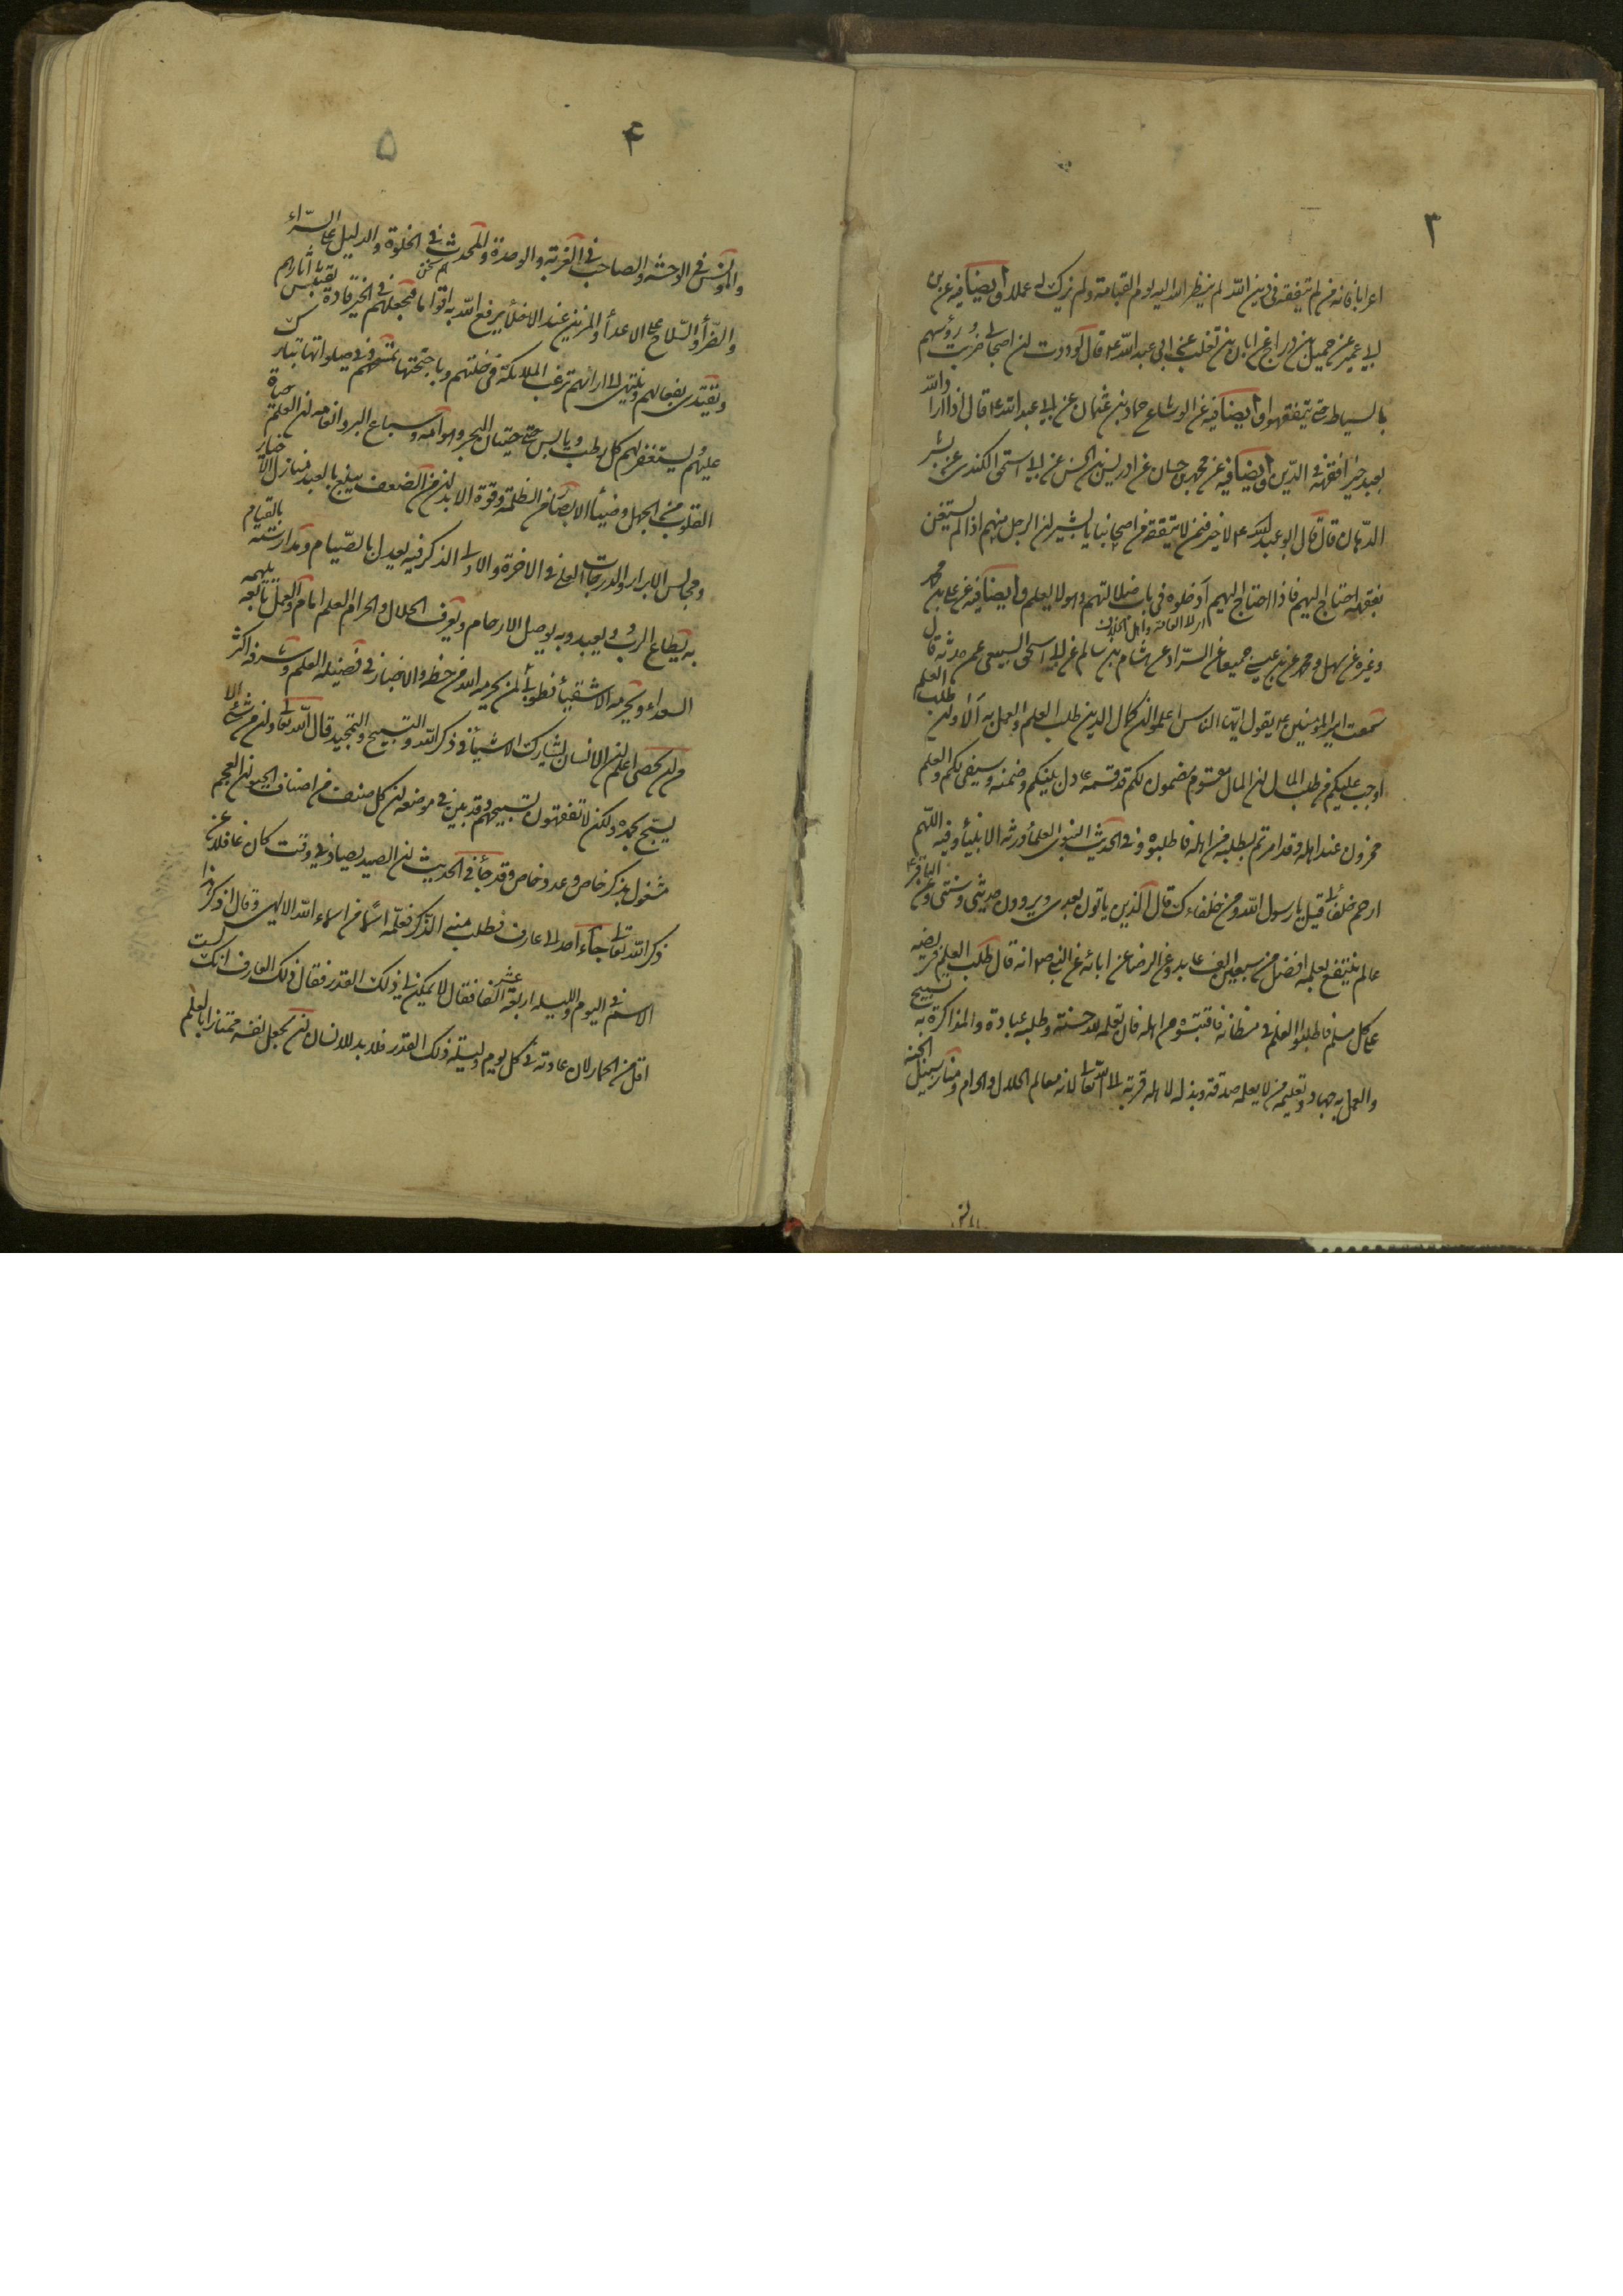 ٣
اعرابا فانه من لم يتفقه في دين الله لم ينظر الله اليه يوم القيامة ولم يزك له عملا وايضا فيه عن ابن
ابي عمير عن جميل بن دراج عن ابان بن تغلب عن ابي عبد الله ع قال لوددت ان اصحابي ضربت رؤسهم
بالسياط حتى يتفقهوا وايضا فيه عن الوشاء عن حماد بن عثمان عن ابي عبد الله ع قال اذا اراد الله
بعبد خيرا فقهه في الدين وايضا فيه عن محمد بن حسان عن ادريس بن الحسن عن ابي اسحق الكندي عن بشير
الدهان قال قال ابو عبد الله ع لا خير فيمن لا يتفقه من اصحابنا يا بشير ان الرجل منهم اذا لم يستغن
بفقهه احتاج اليهم فاذا احتاج اليهم ادخلوه في باب ضلالتهم وهو لا يعلم وايضا فيه عن علي بن محمد
اي الى العامة واهل الخلاف
وغيره عن سهل ومحمد عن بن عيسى جميعا عن السراد عن هشام بن سالم عن ابي اسحق السبيعي عمن حدثه قال
سمعت امير المؤمنين ع يقول ايها الناس اعلموا ان كمال الدين طلب العلم والعمل به الا وان طلب العلم
اوجب عليكم من طلب المال ان المال مقسوم مضمون لكم قد قسمه عادل بينكم وضمنه وسيفي لكم والعلم
مخزون عند اهله وقد امرتم بطلبه من اهله فاطلبوه وفي الحديث النبوي العلماء ورثة الانبياء وفيه اللهم
ارحم خلفائي قيل يا رسول الله ومن خلفاءك قال الذين ياتون بعدي ويروون حديثي وسنتي وعن الباقر ع
عالم ينتفع بعلمه افضل من سبعين الف عابد وعن الرضا عن ابائه عن النبي ص انه قال طلب العلم فريضة
على كل مسلم فاطلبوا العلم في مظانه فاقتبسوه من اهله فان تعلمه لله حسنة وطلبه عبادة والمذاكرة به تسبيح
والعمل به جهاد وتعليمه من لا يعلمه صدقة وبذله لاهله قربة الى الله تعالى لانه معالم الحلال والحرام ومنار سبيل الجنة
٤
٥
والمونس في الوحشة والصاحب في الغربة والوحدة والمحدث في الخلوة والدليل على السراء
والضراء والسلاح على الاعداء والزين عند الاخلاء يرفع الله به اقواما فيجعلهم في الخير قادة يقتبس اثارهم
ويقتدى بفعالهم وينتهى الى ارائهم ترغب الملائكة في خلتهم وباجنحتها تمسحهم وفي صلواتها تبارك
عليهم ويستغفر لهم كل رطب ويابس حتى حيتان البحر وهوامه وسباع البر وانعامه ان العلم حياة
القلوب من الجهل وضياء الابصار من الظلمة وقوة الابدان من الضعف يبلغ بالعبد منازل الاخيار
ومجالس الابرار والدرجات العلى في الاخرة والاولى الذكر فيه يعدل بالصيام ومدارسته بالقيام
به يطاع الرب ويعبد وبه يوصل الارحام ويعرف الحلال والحرام العلم امام والعمل تابعه يلهمه
السعداء ويحرمه الاشقياء فطوبى لمن لم يحرمه الله من حظه والاخبار في فضيلة العلم وشرفه اكثر
من ان يحصى اعلم ان الانسان يشارك الاشياء في ذكر الله والتسبيح والتمجيد قال الله تعالى وان من شيء الا
يسبح بحمده ولكن لا تفقهون تسبيحهم وقد بين في موضعه ان كل صنف من اصناف الحيوان العجم
مشغول بذكر خاص وعدد خاص وقد جاء في الحديث ان الصيد يصاد في وقت كان غافلا عن
ذكر الله تعالى جاء احد الى عارف فطلب منه الذكر فعلمه اسما من اسماء الله الالهي وقال اذكر هذا
الاسم في اليوم والليلة اربعة عشر الفا فقال لا يمكنني ذلك القدر فقال ذلك العارف انك لست
اقل من الحمار لان عادته في كل يوم وليلة ذلك القدر فلا بد للانسان ان يجعل نفسه ممتازا بالعلم